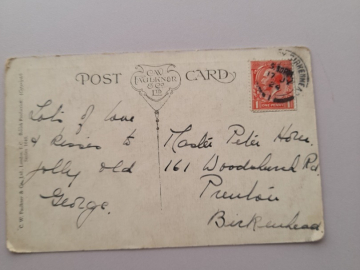 POST CARD
C.W.
FAULKNER
& Co
LTD
Lots of love
& kisses to
jolly old
George.
Master Peter Horn.
161 Woodchurch Rd
Prenton
Birkenhead
C. W. Faulkner & Co., Ltd., London, E.C.